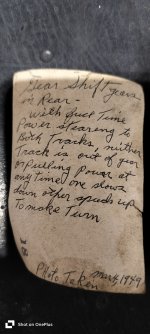 Gear Shift Gears
in Rear -
with fuel Time
Power stearing to
Both Tracks, neither
Track is out of gear
or Pulling Power at
any Time one slows
down other speeds up
To make Turn
Photo Taken
1949
Shot on OnePlus